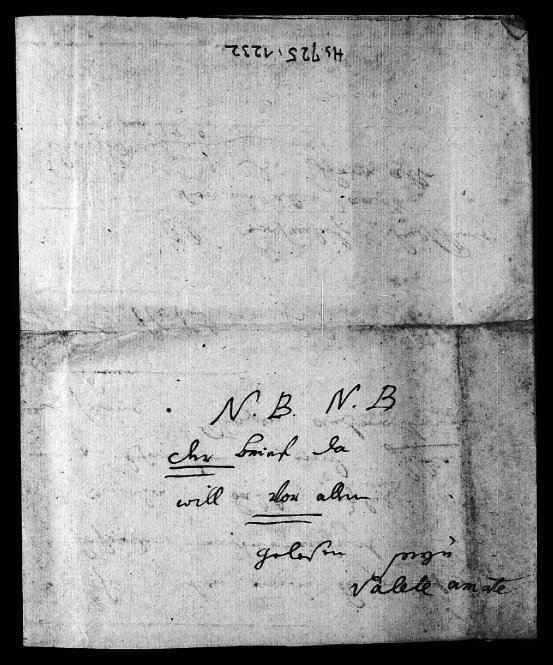 Hs. 725, 1232
N. B. N. B
der brief da
will vor allen
gelesen seyn
valete amate